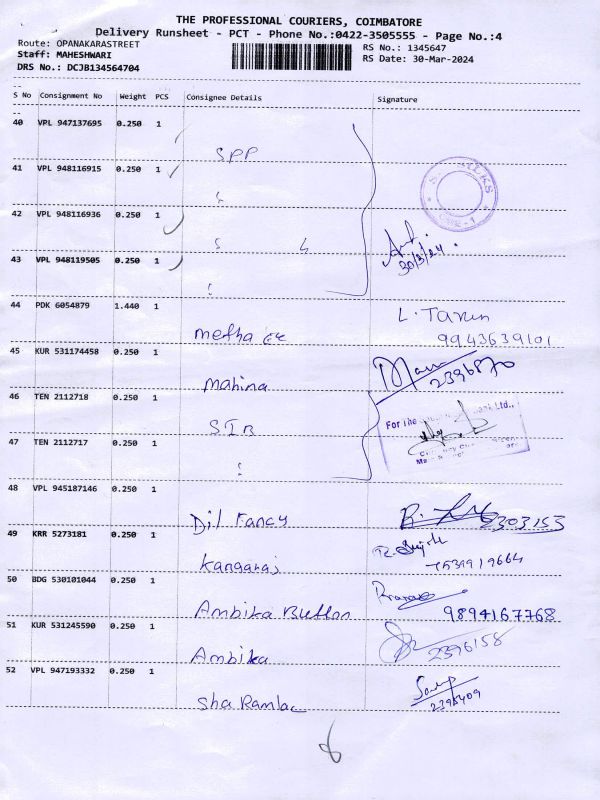 THE PROFESSIONAL COURIERS, COIMBATORE
Delivery Runsheet - PCT - Phone No.:0422-3505555 - Page No.:4
Route: OPANAKARASTREET
RS No.: 1345647
Staff: MAHESHWARI
RS Date: 30-Mar-2024
DRS No.: DCJB134564704
S No Consignment No Weight PCS Consignee Details Signature
40 VPL 947137695 0.250 1
SPP
41 VPL 948116915 0.250 1
42 VPL 948116936 0.250 1
30/3/24
43 VPL 948119505 0.250 1
44 PDK 6054879 1.440 1
L. Tarun
metha cc 9943639101
45 KUR 531174458 0.250 1
mahina 2396870
46 TEN 2112718 0.250 1
For the Ltd.,
SIB
47 TEN 2112717 0.250 1
48 VPL 945187146 0.250 1
Dil Fancy 2303153
49 KRR 5273181 0.250 1
Kangaraj 7539919664
50 BDG 530101044 0.250 1
Ambika Button 9894167768
51 KUR 531245590 0.250 1
Ambika 2396158
52 VPL 947193332 0.250 1
Sha Ramlal 2395409